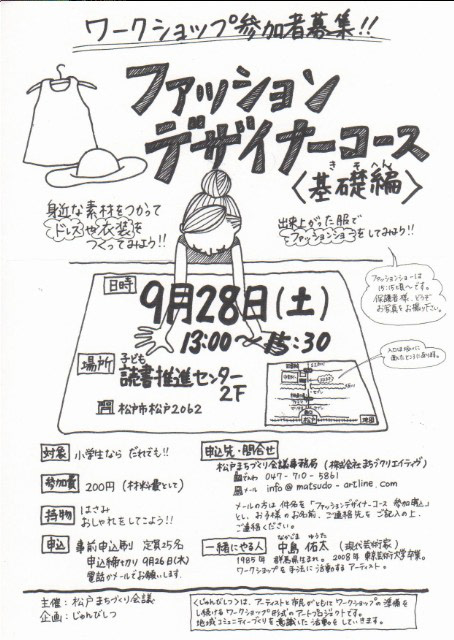 ワークショップ参加者募集!!
ファッション
デザイナーコース
きそへん
〈基礎編〉
身近な素材をつかって
ドレスや衣装を
つくってみよう!!
出来上がった服で
ファッションショーをしてみよう!!
ファッションショーは
15:15頃〜です。
保護者様、どうぞ
お写真をお撮り下さい。
日時
9月28日(土)
13:00〜15:30
場所 子ども
読書推進センター
2F
松戸市松戸2062
対象 小学生なら だれでも!!
参加費 200円(材料費として)
持物 はさみ
おしゃれをしてこよう!!
申込 事前申込制 定員25名
申込締セカリ 9月26日(木)
電話かメールでお願いします。
申込先・問合せ
松戸まちづくり会議事務局(株式会社まちづクリエイティブ)
でんわ 047-710-5861
メール info@matsudo-artline.com
メールの方は件名を「ファッションデザイナーコース 参加申込」
とし、お子様のお名前、ご連絡先をご記入の上、
ご連絡ください。
一緒にやる人
なかじま ゆうた
中島 佑太(現代芸術家)
1985年 群馬県生まれ。2008年 東京芸術大学卒業。
ワークショップを手法に活動するアーティスト。
主催:松戸まちづくり会議
企画:じゅんびしつ
〈じゅんびしつ〉は、アーティストと市民がともにワークショップの準備を
し続けるワークショップ形式のアートプロジェクトです。
地域コミュニティーづくりを意識した活動をしていきます。